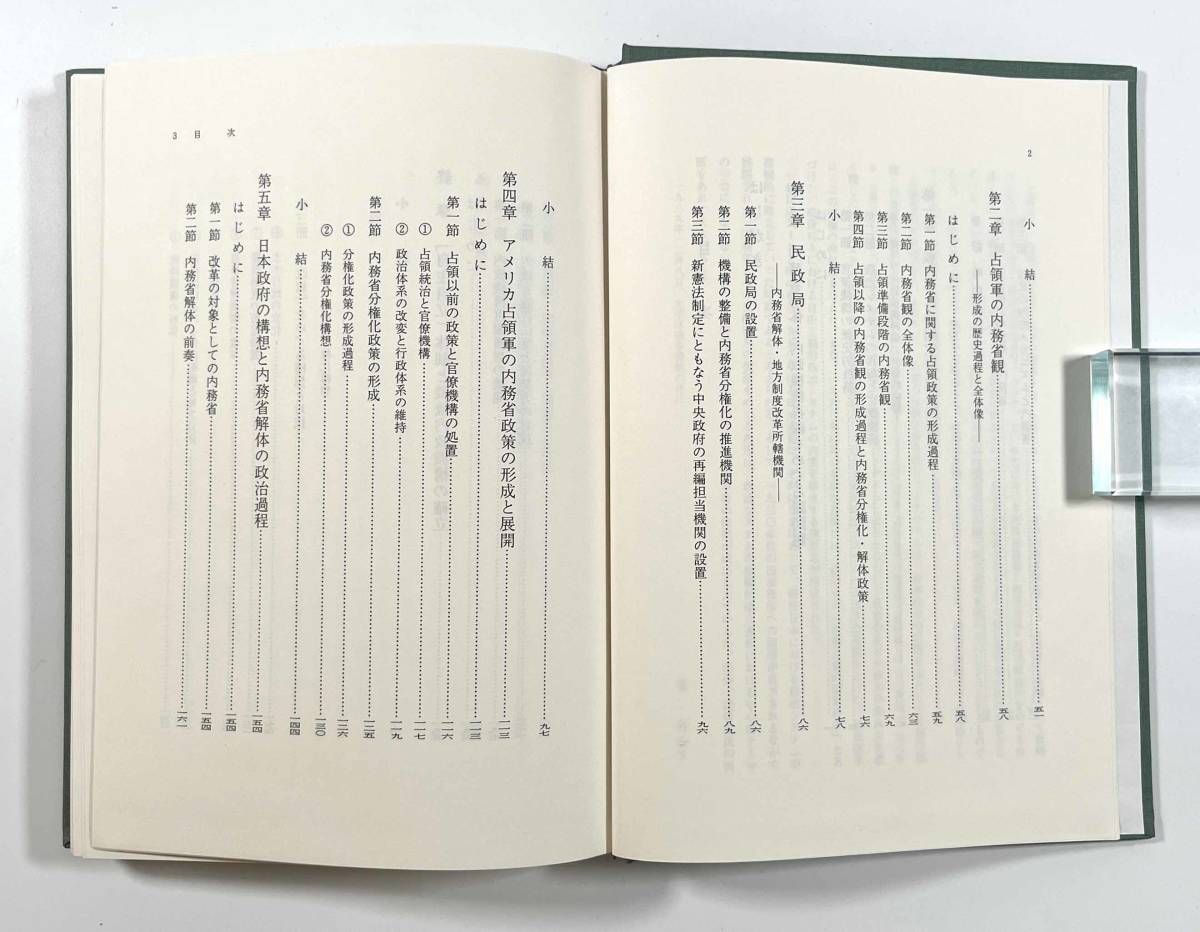 2
小結……五一
第二章 占領軍の内務省観……五八
――形成の歴史過程と全体像――
はじめに……五八
第一節 内務省に関する占領政策の形成過程……五九
第二節 内務省観の全体像……六三
第三節 占領準備段階の内務省観……六九
第四節 占領以降の内務省観の形成過程と内務省分権化・解体政策……七六
小結……七八
第三章 民政局……八六
――内務省解体・地方制度改革所轄機関――
第一節 民政局の設置……八六
第二節 機構の整備と内務省分権化の推進機関……八九
第三節 新憲法制定にともなう中央政府の再編担当機関の設置……九六
3 目次
小結……九七
第四章 アメリカ占領軍の内務省政策の形成と展開……一一三
はじめに……一一三
第一節 占領以前の政策と官僚機構の処置……一一六
① 占領統治と官僚機構……一一七
② 政治体系の改変と行政体系の維持……一一九
第二節 内務省分権化政策の形成……一二五
① 分権化政策の形成過程……一二六
② 内務省分権化構想……一三〇
小結……一四四
第五章 日本政府の構想と内務省解体の政治過程……一五四
はじめに……一五四
第一節 改革の対象としての内務省……一五四
第二節 内務省解体の前奏……一六一